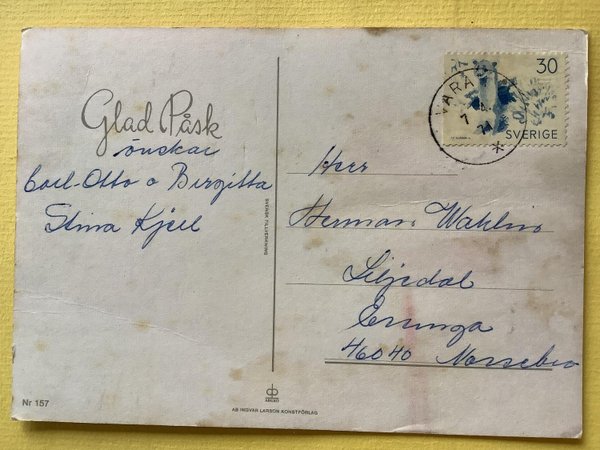 Glad Påsk
önskar
Carl-Otto o Birgitta
Stina Kjell
SVENSK TILLVERKNING
Nr 157
AB INGVAR LARSON KONSTFÖRLAG
VARA
7
30
SVERIGE
Herr
Herman Wahlin
Liljedal
Önunga
46040 Nossebro